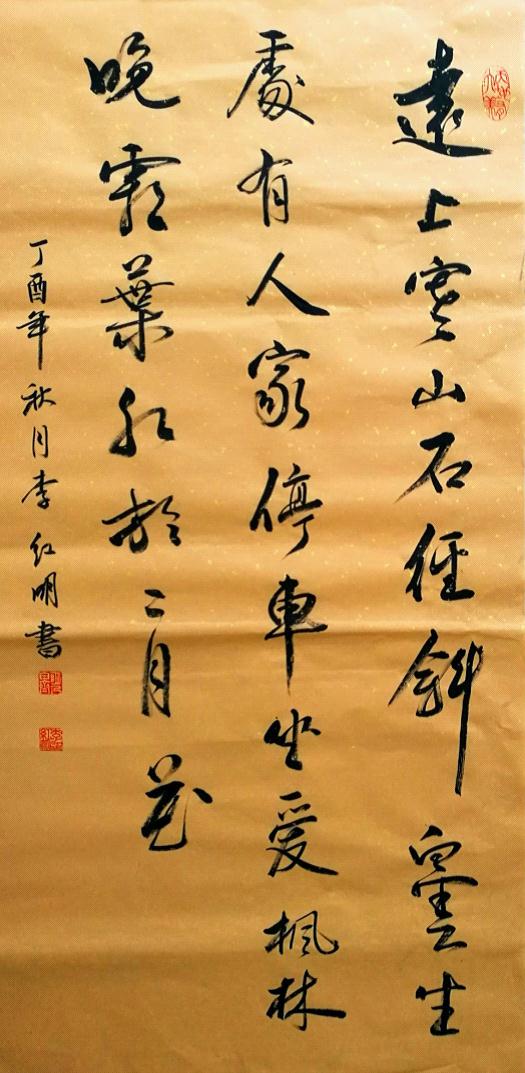 遠上寒山石徑斜白雲生
處有人家停車坐愛楓林
晚霜葉紅於二月花
丁酉年秋月李紅明書